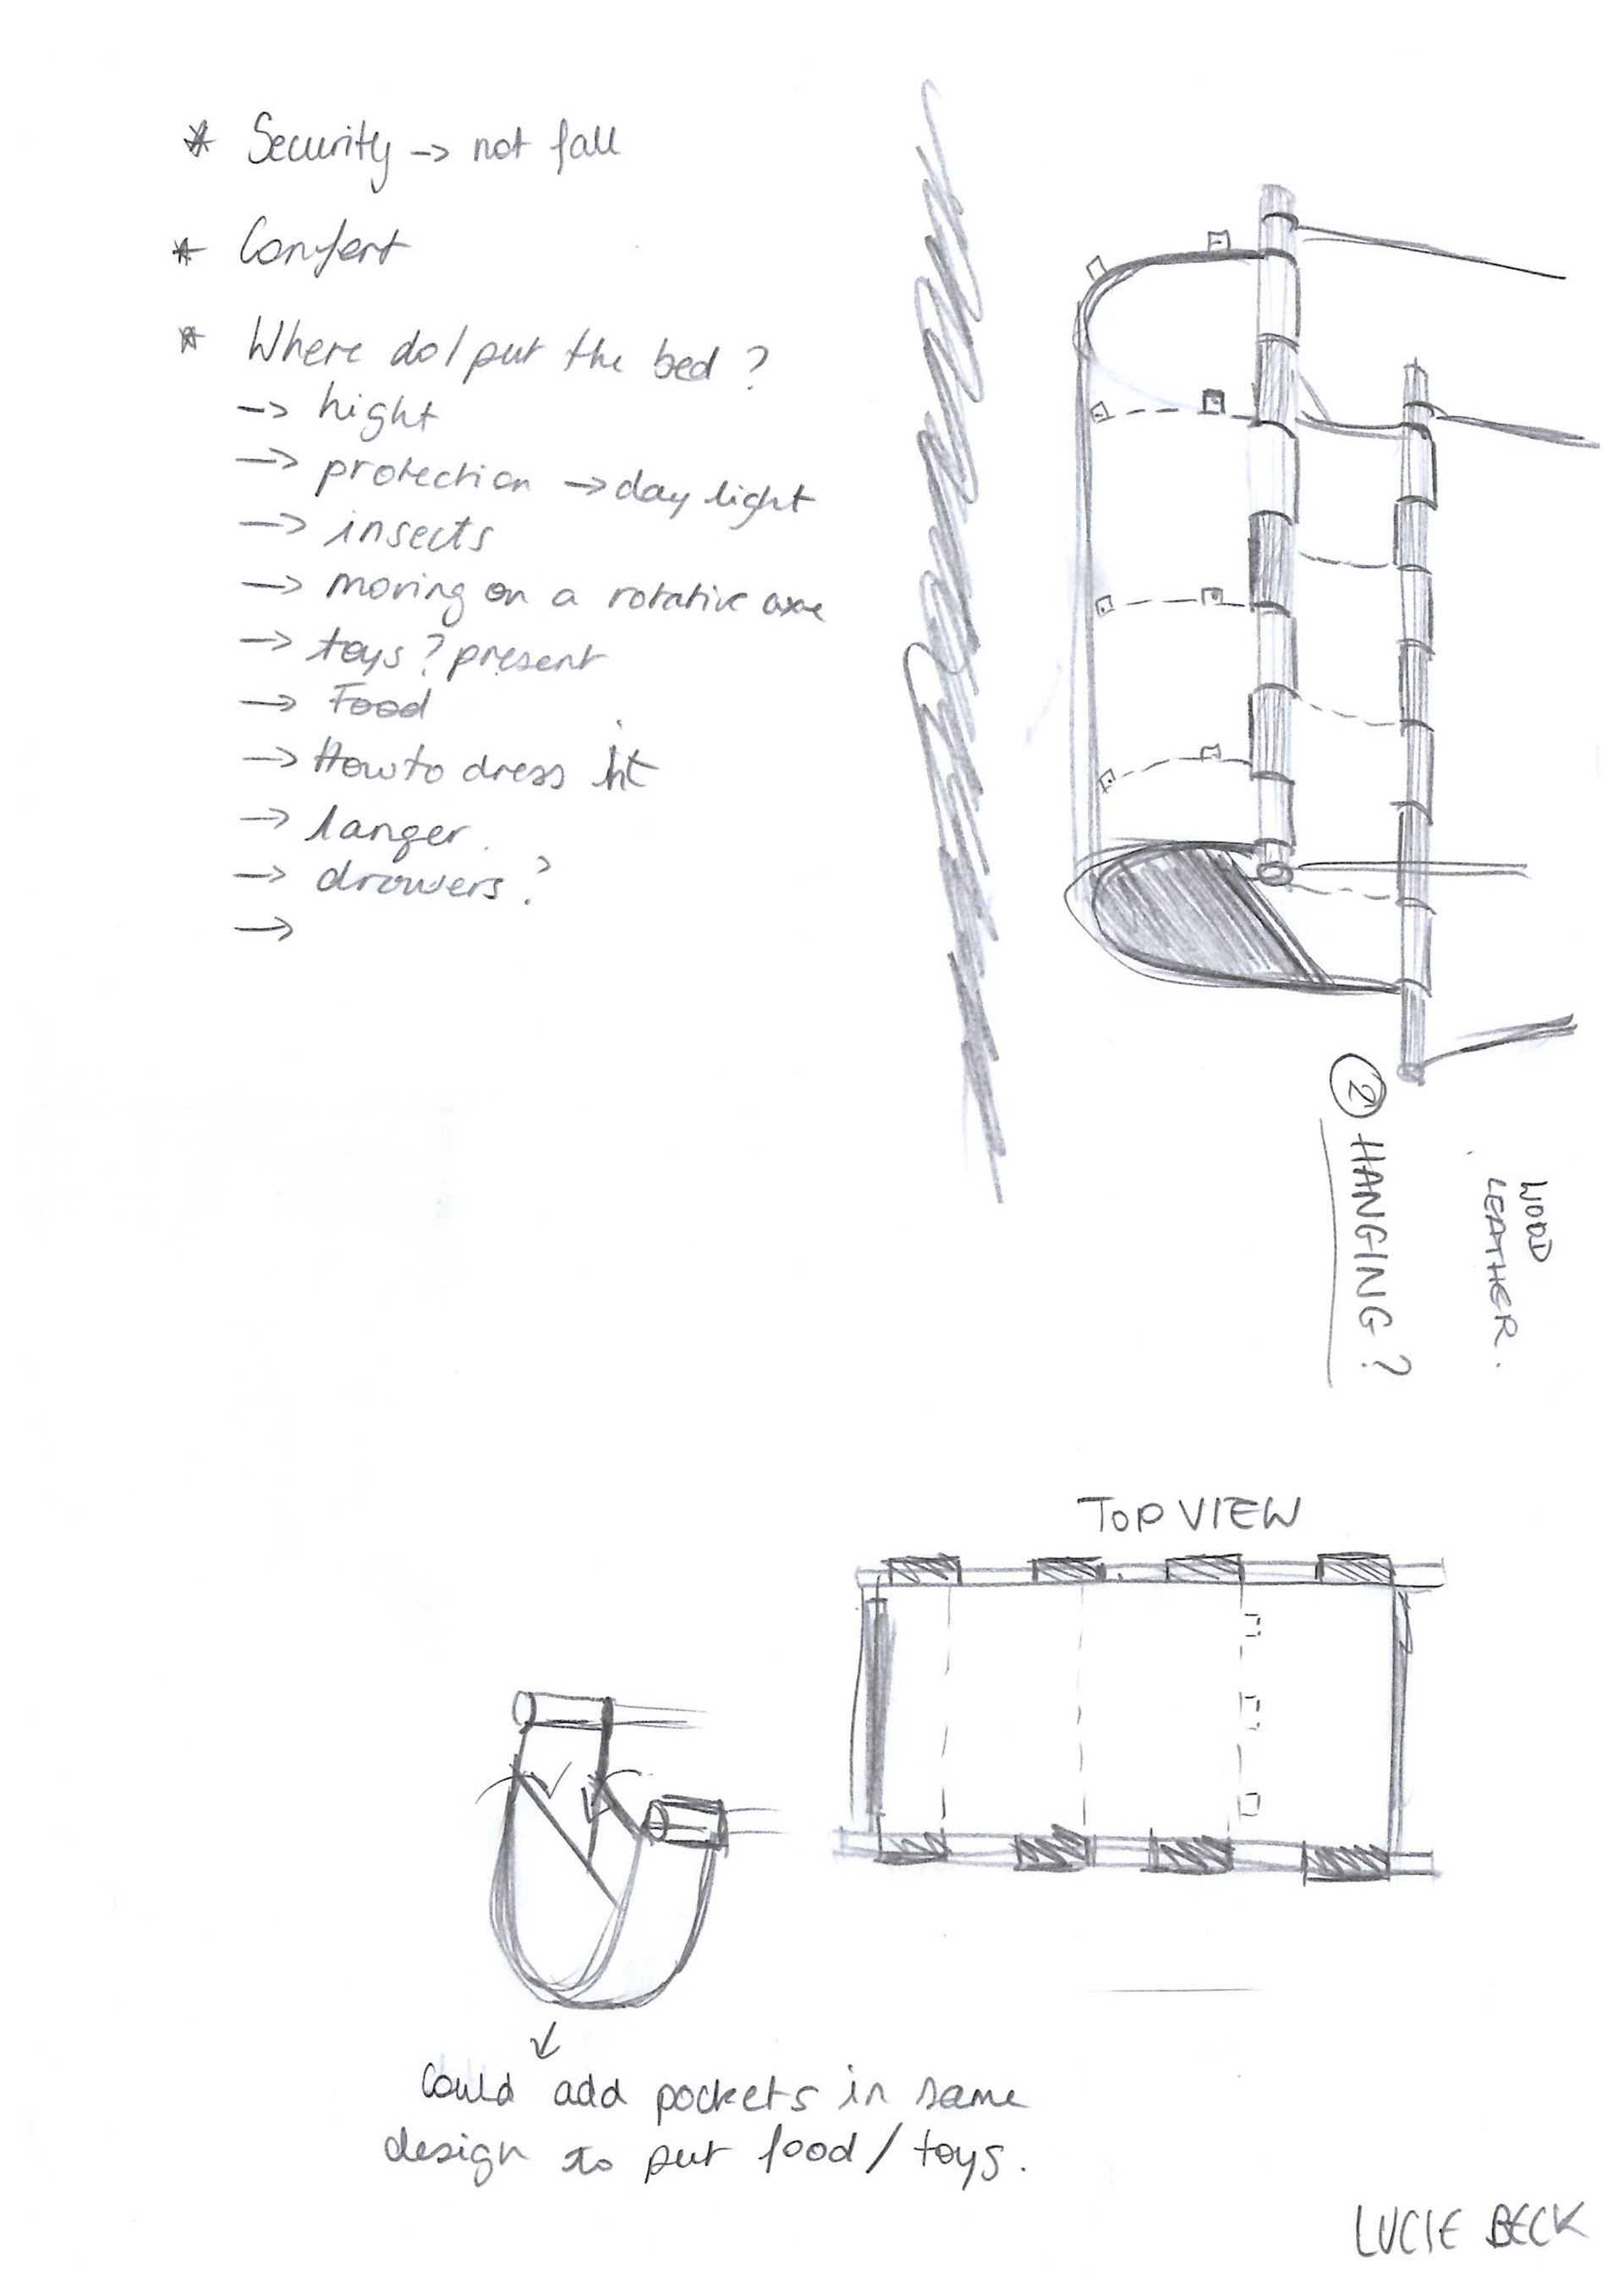 * Security -> not fall
* Comfort
* Where do I put the bed ?
-> hight
-> protection -> day light
-> insects
-> moving on a rotative axe
-> toys ? present
-> Food
-> How to dress it
-> langer.
-> drowers ?
->
② HANGING ?
WOOD
LEATHER.
TOP VIEW
↓
Could add pockets in same
design to put food / toys.
LUCIE BECK